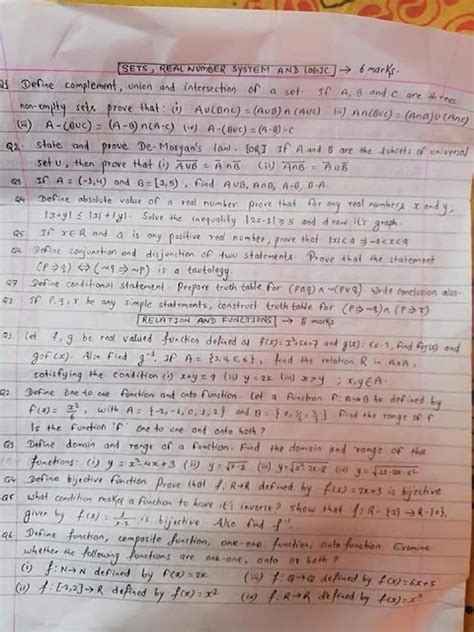 SETS, REAL NUMBER SYSTEM AND LOGIC → 6 marks.
Q1 Define complement, union and intersection of a set. If A, B and C are three
non-empty sets prove that: (i) A∪(B∩C) = (A∪B)∩(A∪C) (ii) A∩(B∪C) = (A∩B)∪(A∩C)
(iii) A-(B∪C) = (A-B)∩(A-C) (iv) A-(B∪C) = (A-B)-C
Q2 state and prove De-Morgan's law. [OR] If A and B are the subsets of universal
set U, then prove that (i) A∪B = A∩B (ii) A∩B = A∪B
Q3 If A = (-3,4) and B = [3,5), find A∪B, A∩B, A-B, B-A.
Q4 Define absolute value of a real number. prove that for any real numbers x and y,
|x+y| ≤ |x|+|y|. Solve the inequality |2x-3| ≥ 5 and draw it's graph.
Q5 If x∈R and a is any positive real number, prove that |x|<a ⇒ -a<x<a
Q6 Define conjunction and disjunction of two statements. Prove that the statement
(P⇒q) ⇔ (~q⇒~P) is a tautology.
Q7 Define conditional statement. Prepare truth table for (P∧q) ∧ ~(P∨q) Write conclusion also.
If P, q, r be any simple statements, construct truth table for (P⇒~q) ∧ (P⇒r)
RELATION AND FUNCTIONS → 8 marks
Q1 Let f, g be real valued function defined as f(x) = and g(x) = find fog(x) and
gof(x). Also find g⁻¹. If A = {2,4,5,6}, find the relation R in A×A,
satisfying the condition (i) x+y = 9 (ii) y = 2x (iii) x > y ; x,y∈A.
Q2 Define one to one function and onto function. Let a function f: A→B be defined by
f(x) = x²/6, with A = {-2,-1,0,1,2} and B = Find the range of f
Is the function 'f' one to one and onto both?
Q3 Define domain and range of a function. Find the domain and range of the
functions: (i) y = x²-4x+3 (ii) y = (iii) y = (iv) y =
Q4 Define bijective function Prove that f: R→R defined by f(x) = 2x+3 is bijective
Q5 What condition makes a function to have it's inverse? Show that f: R-{2}→R-{0},
given by f(x) = 1/(x-2) is bijective. Also find f⁻¹.
Q6 Define function, composite function, one-one function, onto function Examine
whether the following functions are one-one, onto or both?
(i) f: N→N defined by f(x) = 2x (iii) f: Q→Q defined by f(x) = 6x+5
(ii) f: [-2,2]→R defined by f(x) = x² (iv) f: R→R defined by f(x) = x³